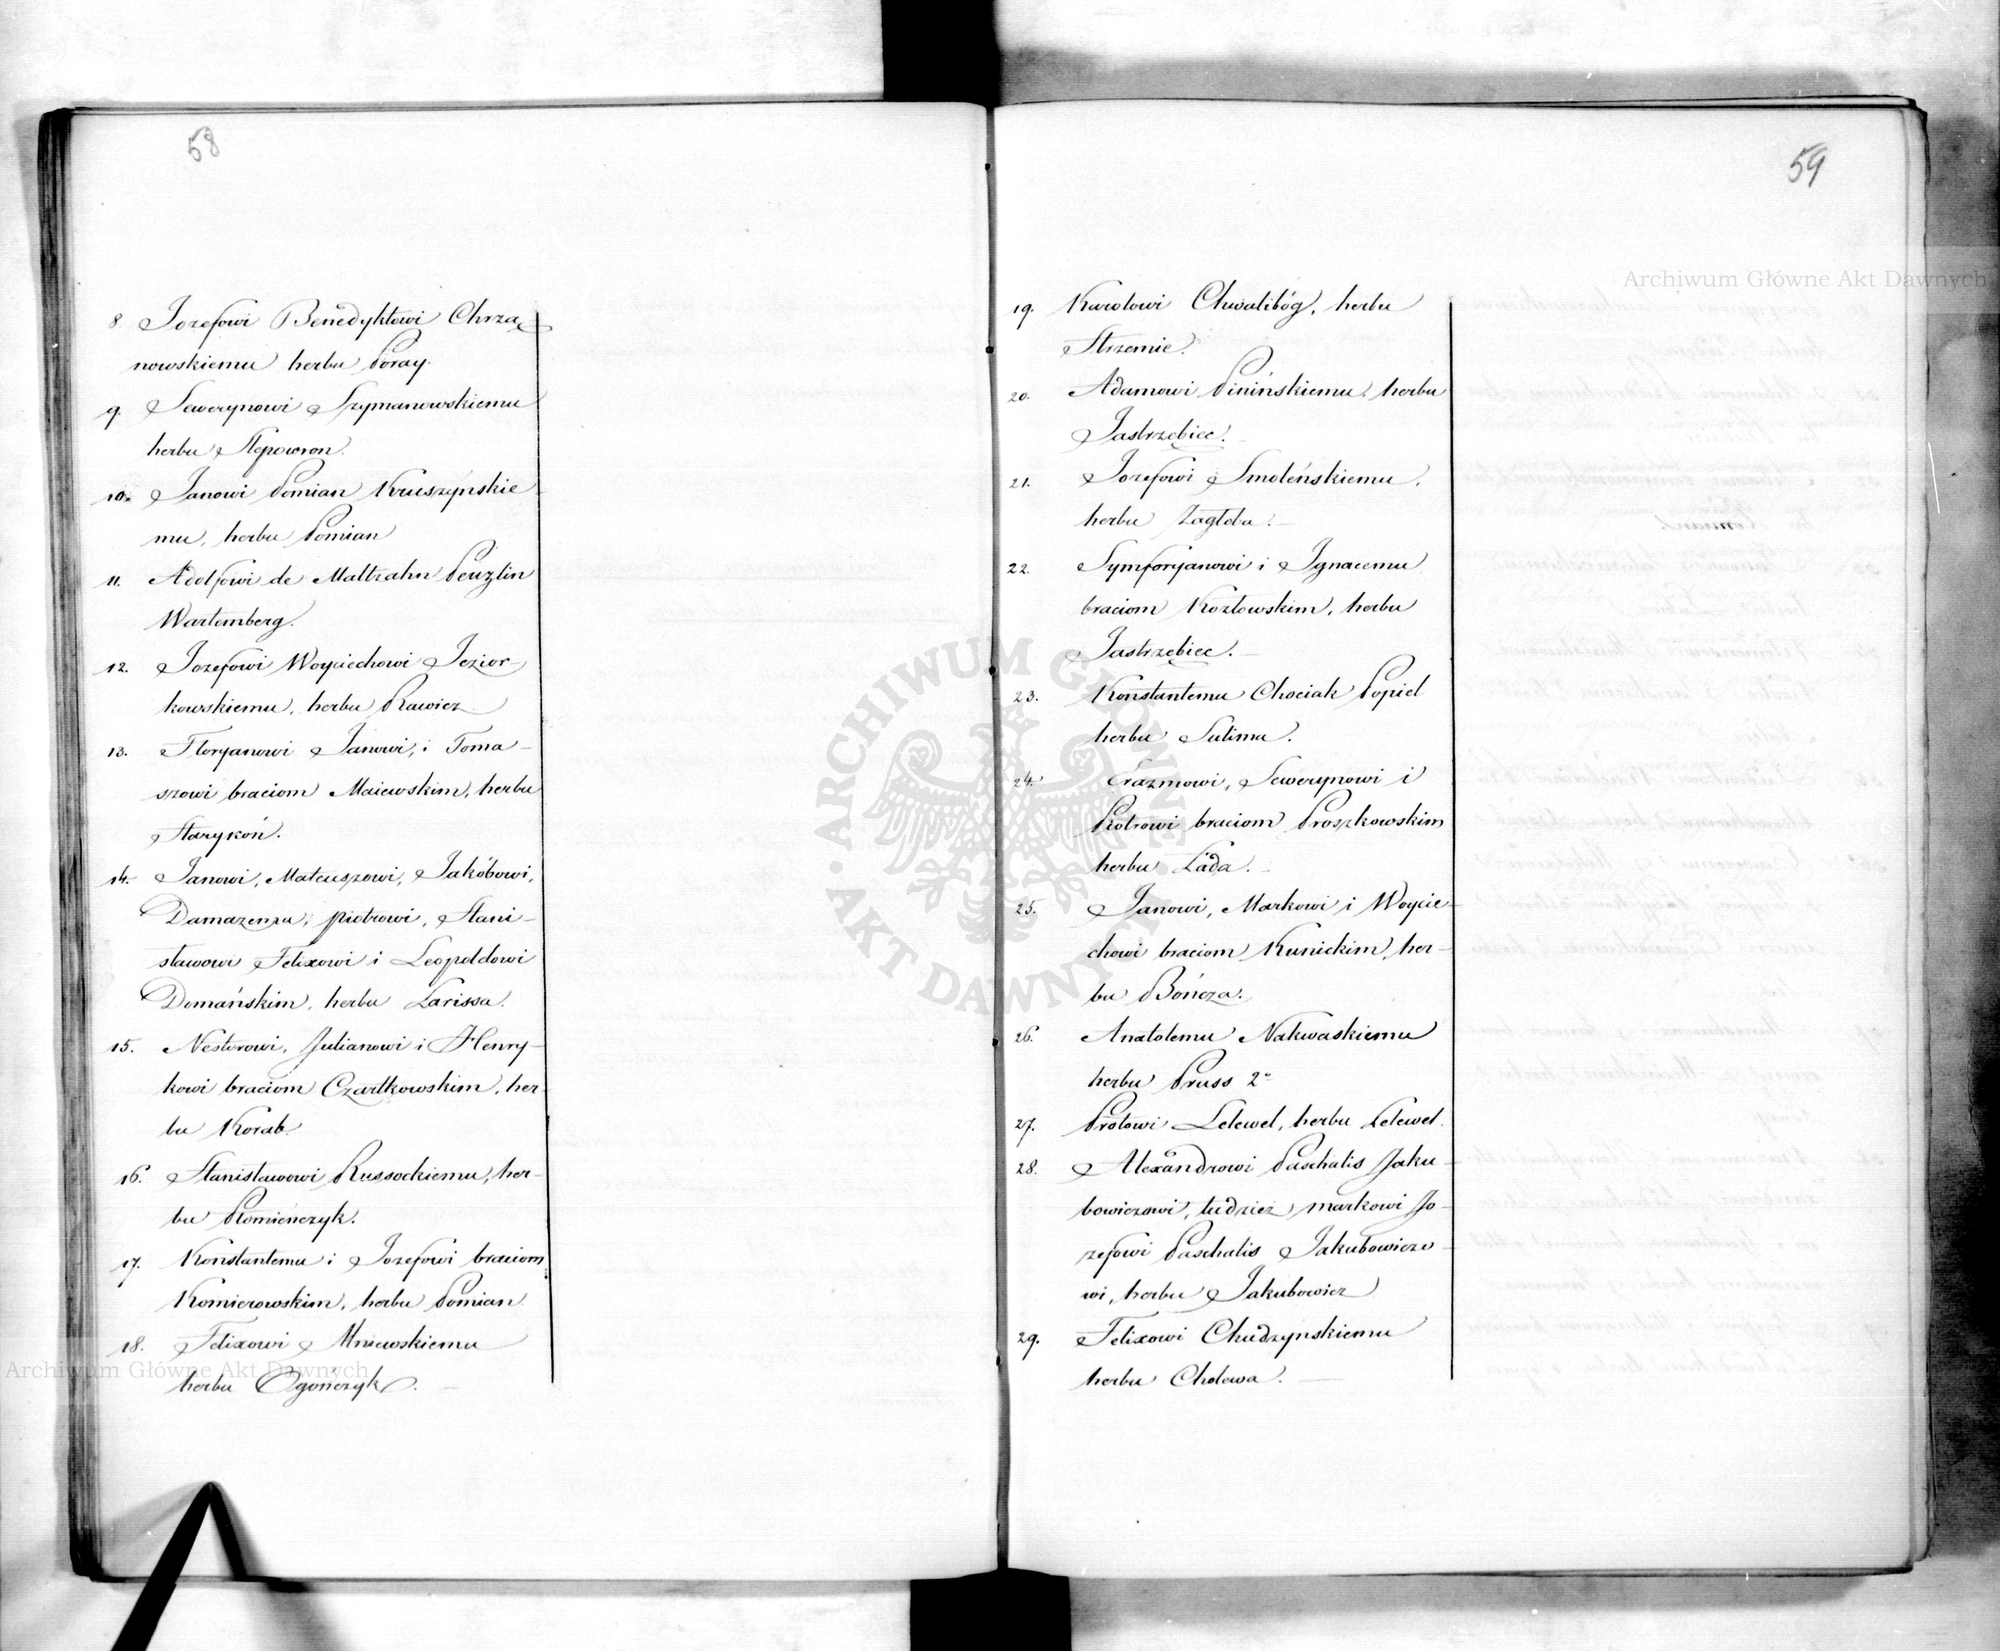 58
8. Jozefowi Benedyktowi Chrza
nowskiemu herbu Poray.
9. Sewerynowi Szymanowskiemu
herbu Slepowron.
10. Janowi Pomian Kruszyńskie
mu, herbu Pomian
11. Adolfowi de Maltzahn Penzlin
Wartemberg.
12. Jozefowi Woyciechowi Jezior-
kowskiemu, herbu Rawicz
13. Floryanowi Janowi, i Toma-
szowi braciom Maiewskim, herbu
Starykoń.
14. Janowi, Mateuszowi, Jakóbowi,
Damazemu, piotrowi, Stani-
sławowi Felixowi i Leopoldowi
Domańskim, herbu Larissa.
15. Nestorowi, Julianowi i Henry-
kowi braciom Czartkowskim, her-
bu Korab.
16. Stanisławowi Russockiemu, her-
bu Płomieńczyk.
17. Konstantemu i Jozefowi braciom
Komierowskim, herbu Pomian
18. Felixowi Mniewskiemu
herbu Ogończyk.
59
19. Karolowi Chwalibóg, herbu
Strzemie.
20. Adamowi Pinińskiemu, herbu
Jastrzębiec.
21. Jozefowi Smoleńskiemu,
herbu Zagłoba.
22. Symforyanowi i Ignacemu
braciom Kozłowskim, herbu
Jastrzębiec.
23. Konstantemu Chociak Popiel
herbu Sulima.
24. Erazmowi, Sewerynowi i
Piotrowi braciom Proszkowskim
herbu Łada.
25. Janowi, Markowi i Woycie-
chowi braciom Kunickim, her-
bu Bończa.
26. Anatolemu Nakwaskiemu
herbu Pruss 2°
27. Protowi Lelewel, herbu Lelewel.
28. Alexandrowi Paschalis Jaku-
bowiczowi, tudzież markowi Jo-
zefowi Paschalis Jakubowiczo-
wi, herbu Jakubowicz
29. Felixowi Chudzynskiemu
herbu Cholewa.
Archiwum Główne Akt Dawnych
Archiwum Główne Akt Dawnych
ARCHIWUM GŁÓWNE AKT DAWNYCH